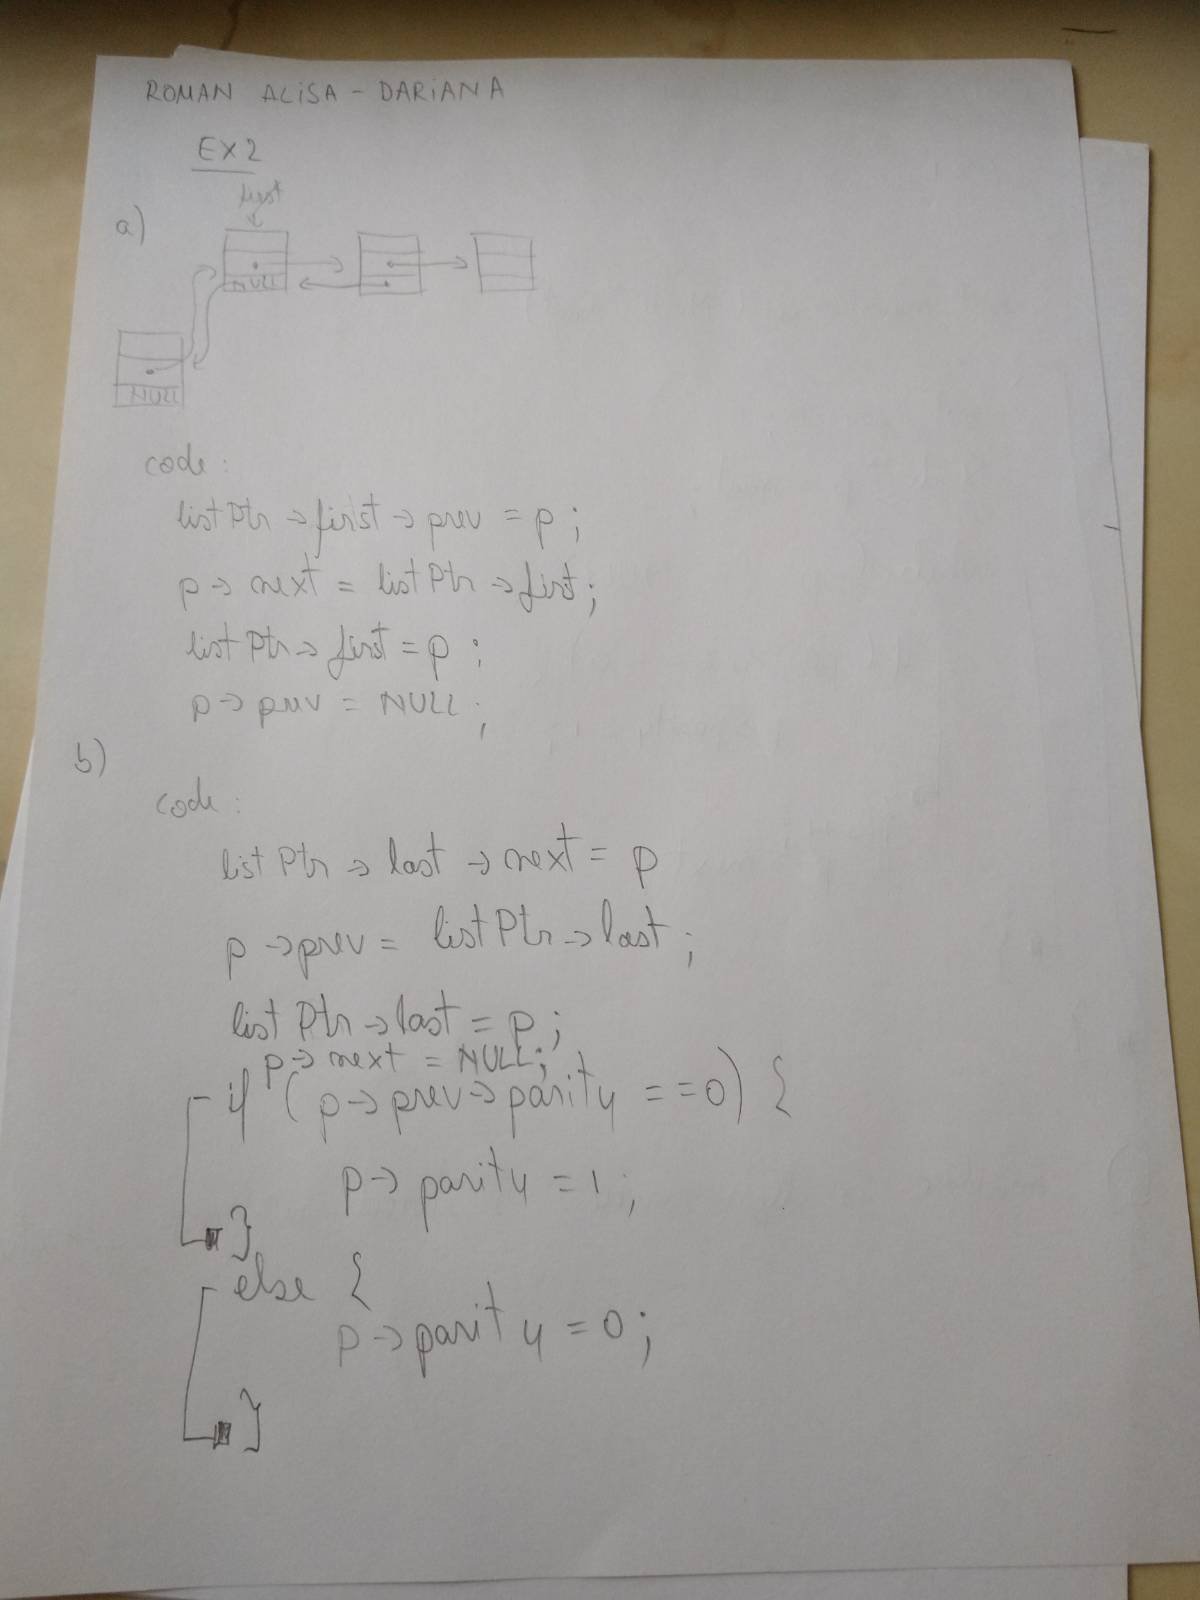 ROMAN ALISA - DARIANA
EX2
first
a)
NULL
NULL
code:
listPtr → first → prev = p;
p → next = listPtr → first;
listPtr → first = p;
p → prev = NULL;
b)
code:
listPtr → last → next = p
p → prev = listPtr → last;
listPtr → last = p;
p → next = NULL;
if (p → prev → parity == 0) {
p → parity = 1;
}
else {
p → parity = 0;
}